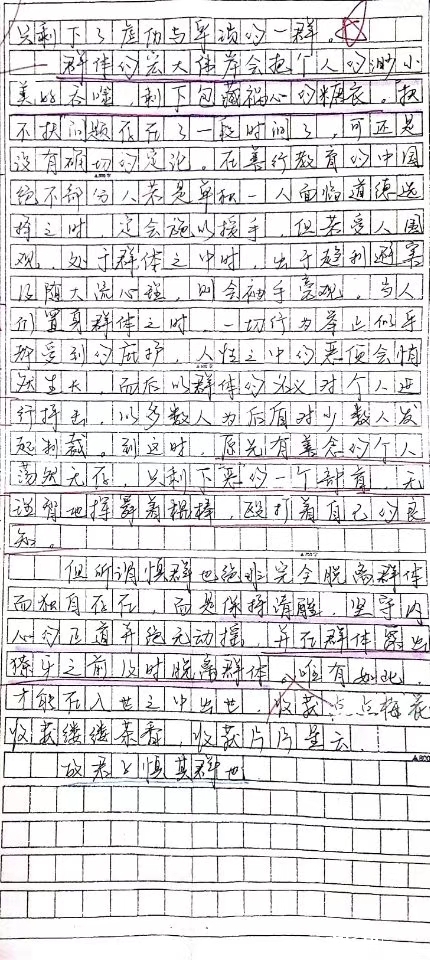 只剩下了虚伪与卑琐的一群。
群体的宏大伟岸会把个人的渺小
美好吞噬,剩下包藏祸心的糖衣。扶
不扶问题存在了一段时间了,可还是
没有确切的定论。在善行教育的中国
绝大部分人若是单独一人面临道德选
择之时,定会施以援手,但若受人围
观,处于群体之中时,出于趋利避害
及随大流心理,则会袖手旁观。当人
们置身群体之时,一切行为举止似乎
都受到的庇护,人性之中的恶便会悄
然生长,而后以群体的名义对个人进
行抨击,以多数人为后盾对少数人发
起制裁。到这时,原先有善念的个人
荡然无存,只剩下恶的一个部首,无
谓智地挥舞着棍棒,殴打着自己的良
知。
但所谓慎群也绝非完全脱离群体
而独自存在,而是保持清醒,坚守内
心的正道并绝无动摇,并在群体露出
獠牙之前及时脱离群体。唯有如此,
才能在入世之中出世,收获点点梅花
收获缕缕茶香,收获片片星云。
故君子慎其群也